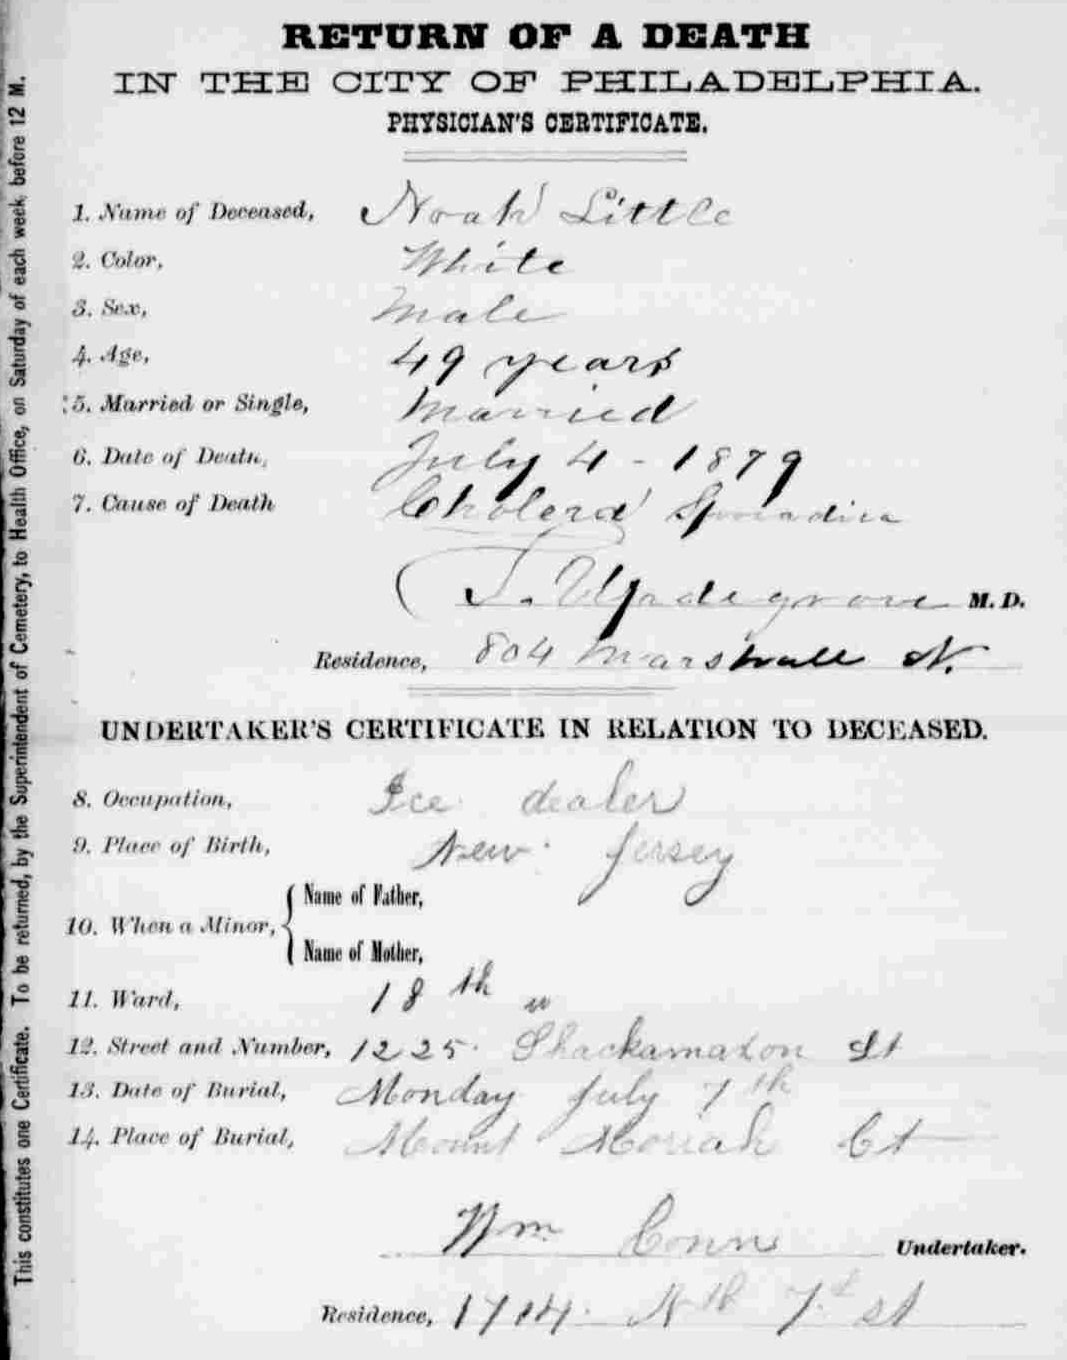 RETURN OF A DEATH
IN THE CITY OF PHILADELPHIA.
PHYSICIAN'S CERTIFICATE.
1. Name of Deceased, Noah Little
2. Color, White
3. Sex, Male
4. Age, 49 years
5. Married or Single, Married
6. Date of Death, July 4 - 1879
7. Cause of Death Cholera Sporadica
J. Updegrove M. D.
Residence, 804 Marshall N.
UNDERTAKER'S CERTIFICATE IN RELATION TO DECEASED.
8. Occupation, Ice dealer
9. Place of Birth, New Jersey
10. When a Minor, { Name of Father,
Name of Mother,
11. Ward, 18th w
12. Street and Number, 1225 Shackamaxon St
13. Date of Burial, Monday July 7th
14. Place of Burial, Mount Moriah Ct
Wm Conn Undertaker.
Residence, 1714 Nth 7th st
This constitutes one Certificate. To be returned, by the Superintendent of Cemetery, to Health Office, on Saturday of each week before 12 M.